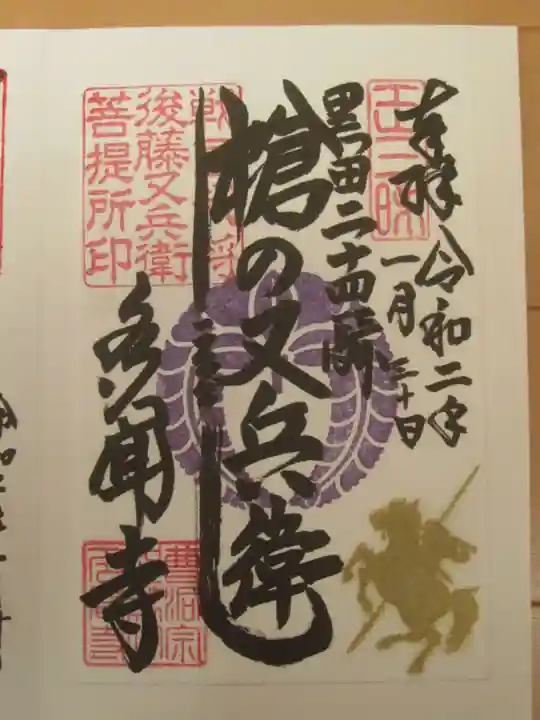 奉拝
令和二年
一月三十日
黒田二十四騎
槍の又兵衛
後藤又兵衛
菩提所印
多聞寺
曹洞宗